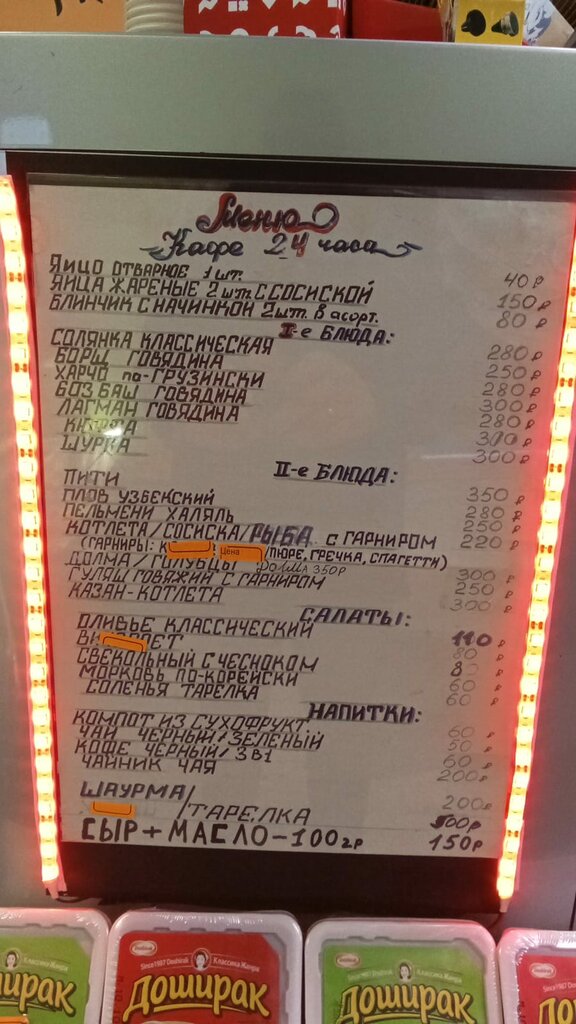 Меню
Кафе 24 часа
ЯЙЦО ОТВАРНОЕ 1 шт. 40 р
ЯЙЦА ЖАРЕНЫЕ 2 шт. С СОСИСКОЙ 150 р
БЛИНЧИК С НАЧИНКОЙ 2 шт. В асорт. 80 р
I-е БЛЮДА:
СОЛЯНКА КЛАССИЧЕСКАЯ 280 р
БОРЩ ГОВЯДИНА 250 р
ХАРЧО по-ГРУЗИНСКИ 280 р
БОЗБАШ ГОВЯДИНА 300 р
ЛАГМАН ГОВЯДИНА 280 р
300 р
ШУРПА 300 р
II-е БЛЮДА:
ПИТИ 350 р
ПЛОВ УЗБЕКСКИЙ 280 р
ПЕЛЬМЕНИ ХАЛЯЛЬ 250 р
КОТЛЕТА/СОСИСКА/РЫБА С ГАРНИРОМ 220 р
(ГАРНИРЫ: К Цена /ПЮРЕ, ГРЕЧКА, СПАГЕТТИ)
ДОЛМА/ГОЛУБЦЫ ДОЛМА 350Р 300 р
ГУЛЯШ ГОВЯЖИЙ С ГАРНИРОМ 250 р
КАЗАН-КОТЛЕТА 300 р
САЛАТЫ:
ОЛИВЬЕ КЛАССИЧЕСКИЙ 110 р
ВИ ЕТ 80 р
СВЕКОЛЬНЫЙ С ЧЕСНОКОМ
МОРКОВЬ ПО-КОРЕЙСКИ 60 р
СОЛЕНЬЯ ТАРЕЛКА 60 р
НАПИТКИ:
КОМПОТ ИЗ СУХОФРУКТ 60 р
ЧАЙ ЧЕРНЫЙ/ЗЕЛЕНЫЙ 50 р
КОФЕ ЧЕРНЫЙ/3В1 60 р
ЧАЙНИК ЧАЯ 200 р
ШАУРМА/ 200 р
/ТАРЕЛКА 300р
СЫР+МАСЛО-100гр 150р
Классика Жанра
Доширак
Since 1987 Doshirak
Классика Жанра
Доширак
Классика Жанра
Доширак
Since 1987
ДО